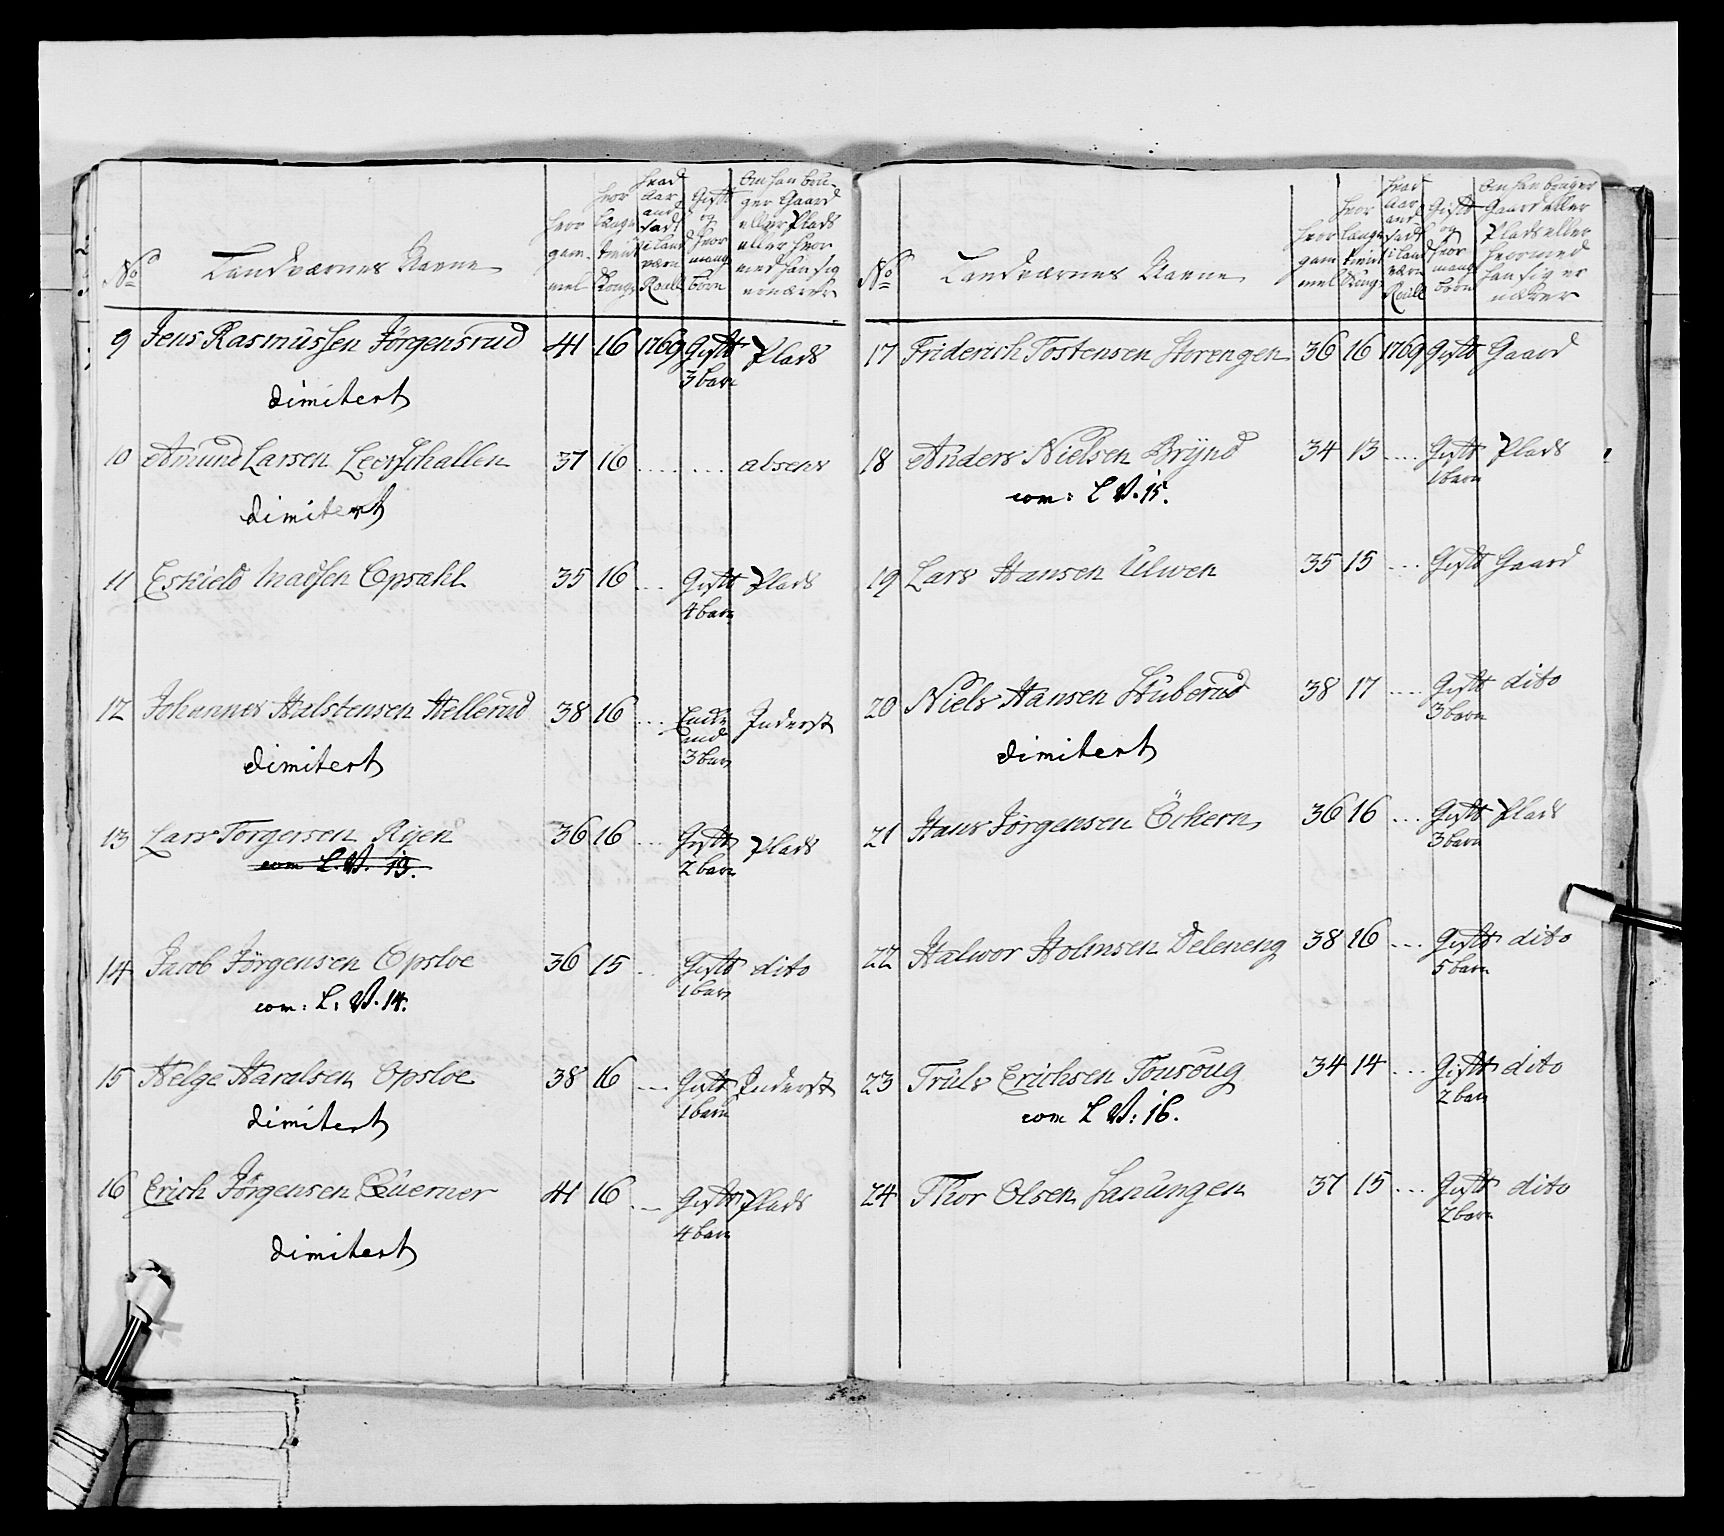 No
Landværnes Navne
hvor gam- mel
hvor længe tient Kong
hvad Aar ansadt i Land værn Roull
Gift og hvor mang børn
Om han bru- ger Gaard eller Plads eller hvor med han sig ernærer
9 Jens Rasmussen Jørgensrud 41 16 1769 Gift Plads
3 barn
dimitert
10 Amund Larsen Leerschallen 37 16 .... .... absens
dimitert
11 Eskield Madsen Opsahl 35 16 ... Gift Plads
4 barn
12 Johannes Halstensen Hellerud 38 16 ... Enke md Inderst
3 barn
dimitert
13 Lars Torgersen Rÿen 36 16 ... Gift Plads
com L. V. 13. 2 barn
14 Jacob Jørgensen Opsloe 36 15 .. Gift dito
1 barn
com: L: V. 14.
15 Helge Haralsen Opsloe 38 16 ... Gift Inderst
1 barn
dimitert
16 Erich Jørgensen Querner 41 16 ... Gift Plads
4 barn
dimitert
No
Landværnes Navne
hvor gam mel
hvor længe tient Kong
hvad Aar ansadt i Land værn Roull
Gift og hvor mang børn
Om han bruger Gaard eller Plads eller hvormed han sig er nærer
17 Friderich Tostensen Storengen 36 16 1769 Gift Gaard
18 Anders Nielsen Brÿnd 34 13 .... Gift Plads
1 barn
com: L V. 15.
19 Lars Hansen Ulwen 35 15 .... Gift Gaard
20 Niels Hansen Stuberud 38 17 .... Gift dito
3 barn
dimitert
21 Hans Jørgensen Öckern 36 16 ... Gift Plads
3 barn
22 Halwor Holmsen Deleneng 38 16 ... Gift dito
5 barn
23 Truls Erichsen Tousoug 34 14 ... Gift dito
2 barn
com L V: 16.
24 Thor Olsen Lanungen 37 15 ... Gift dito
2 barn